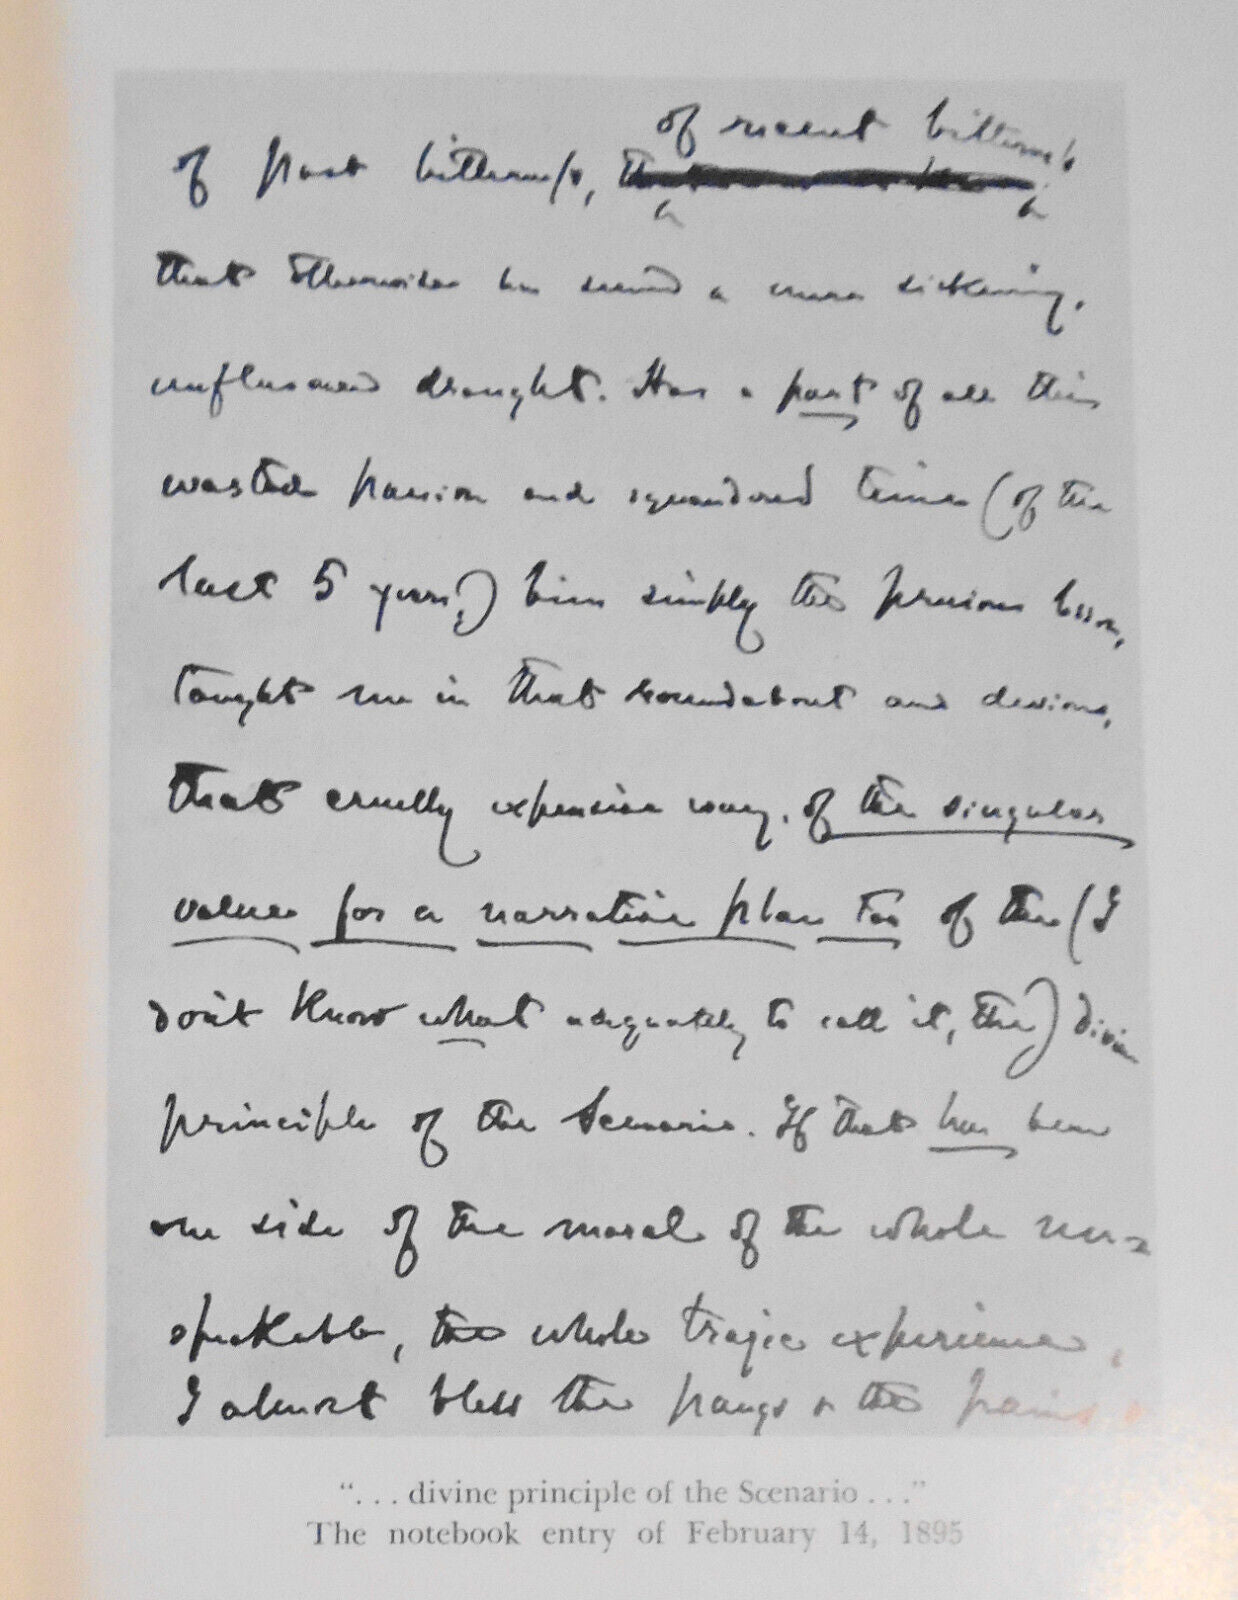 of recent bitterness
of past bitterness,
that otherwise has seemed a mere sickening,
unflavoured draught. Has a part of all this
wasted passion and squandered time (of the
last 5 years,) been simply the precious lesson,
taught me in that roundabout and devious,
that cruelly expensive way, of the singular
value for a narrative plan too of the (I
don't know what adequately to call it, the) divine
principle of the Scenario. If that has been
one side of the moral of the whole un-
speakable, the whole tragic experience,
I almost bless the pangs & the pains &
"... divine principle of the Scenario ..."
The notebook entry of February 14, 1895